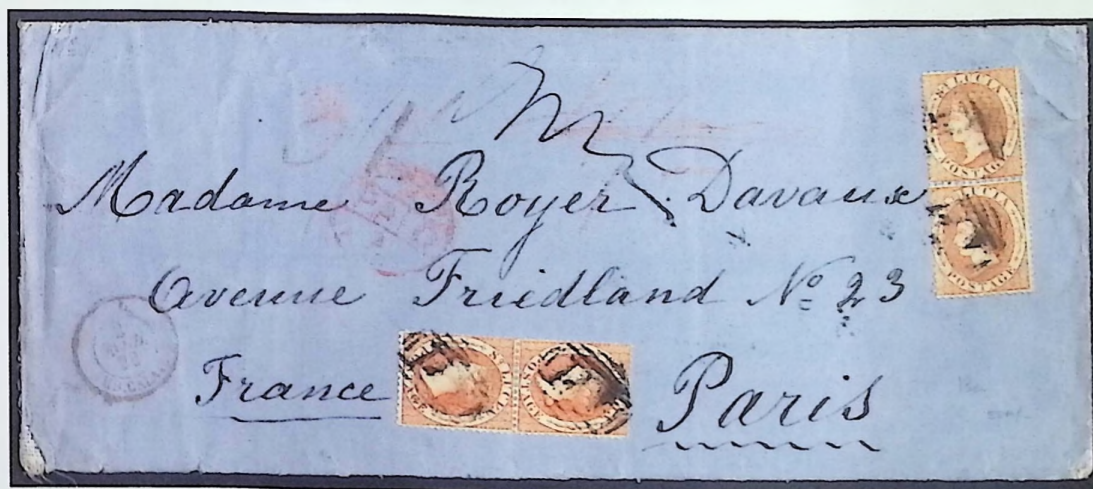 Madame Royer Davaux
Avenue Friedland No 23
France
Paris
ST LUCIA
POSTAGE
LUCIA
POSTAGE